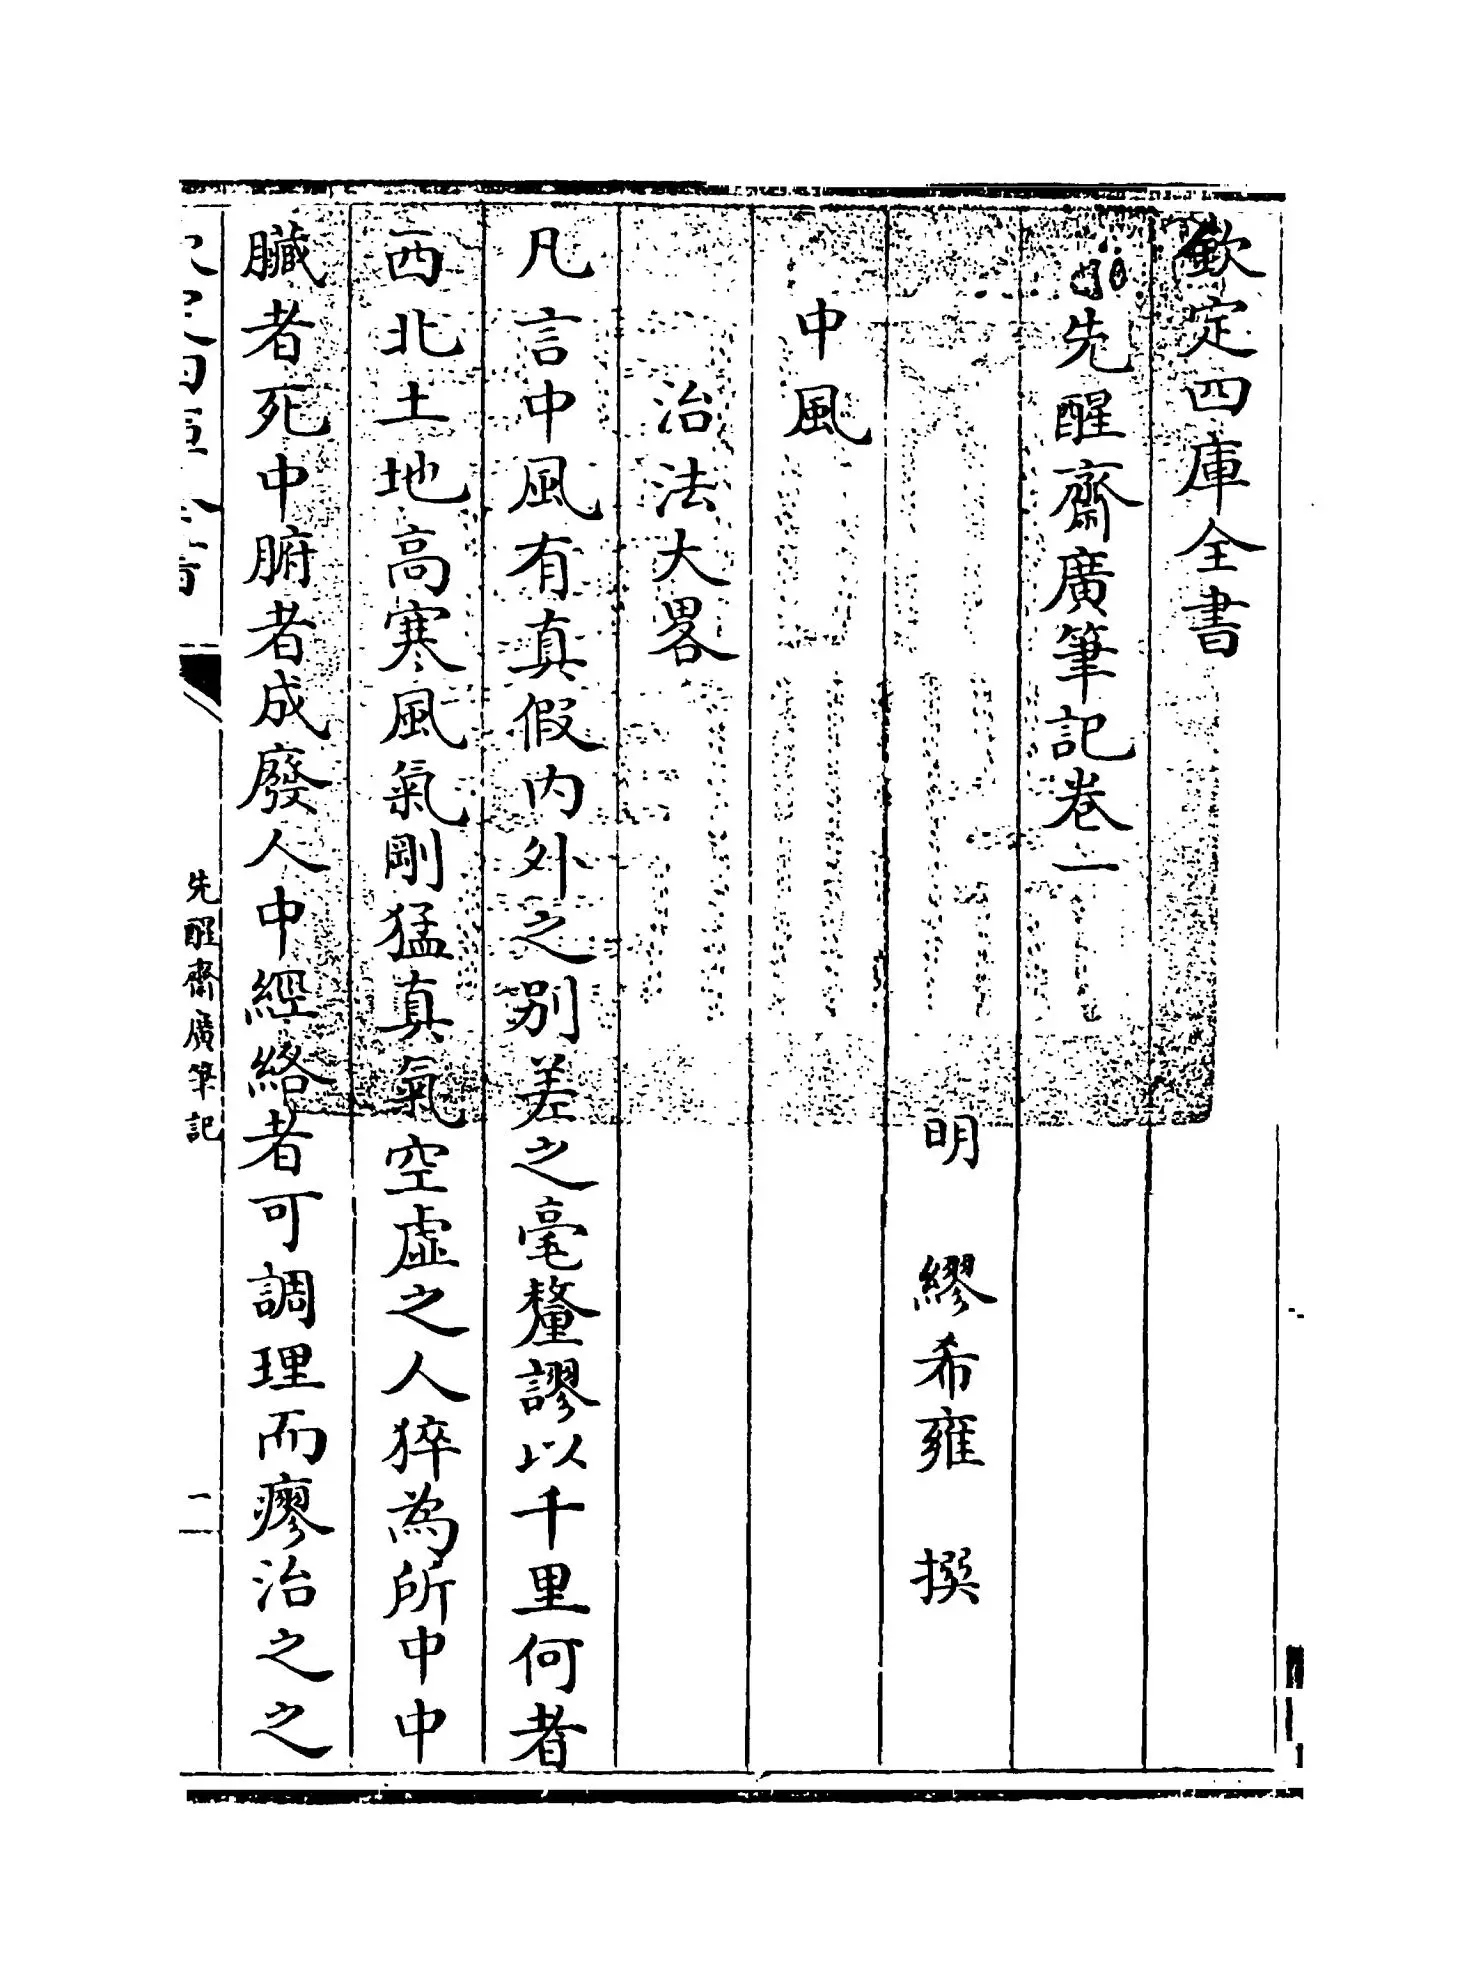 欽定四庫全書
先醒齋廣筆記卷一
明 繆希雍 撰
中風
治法大畧
凡言中風有真假内外之别差之毫釐謬以千里何者
西北土地高寒風氣剛猛真氣空虛之人猝為所中中
臟者死中腑者成廢人中經絡者可調理而瘳治之之
先醒齋廣筆記